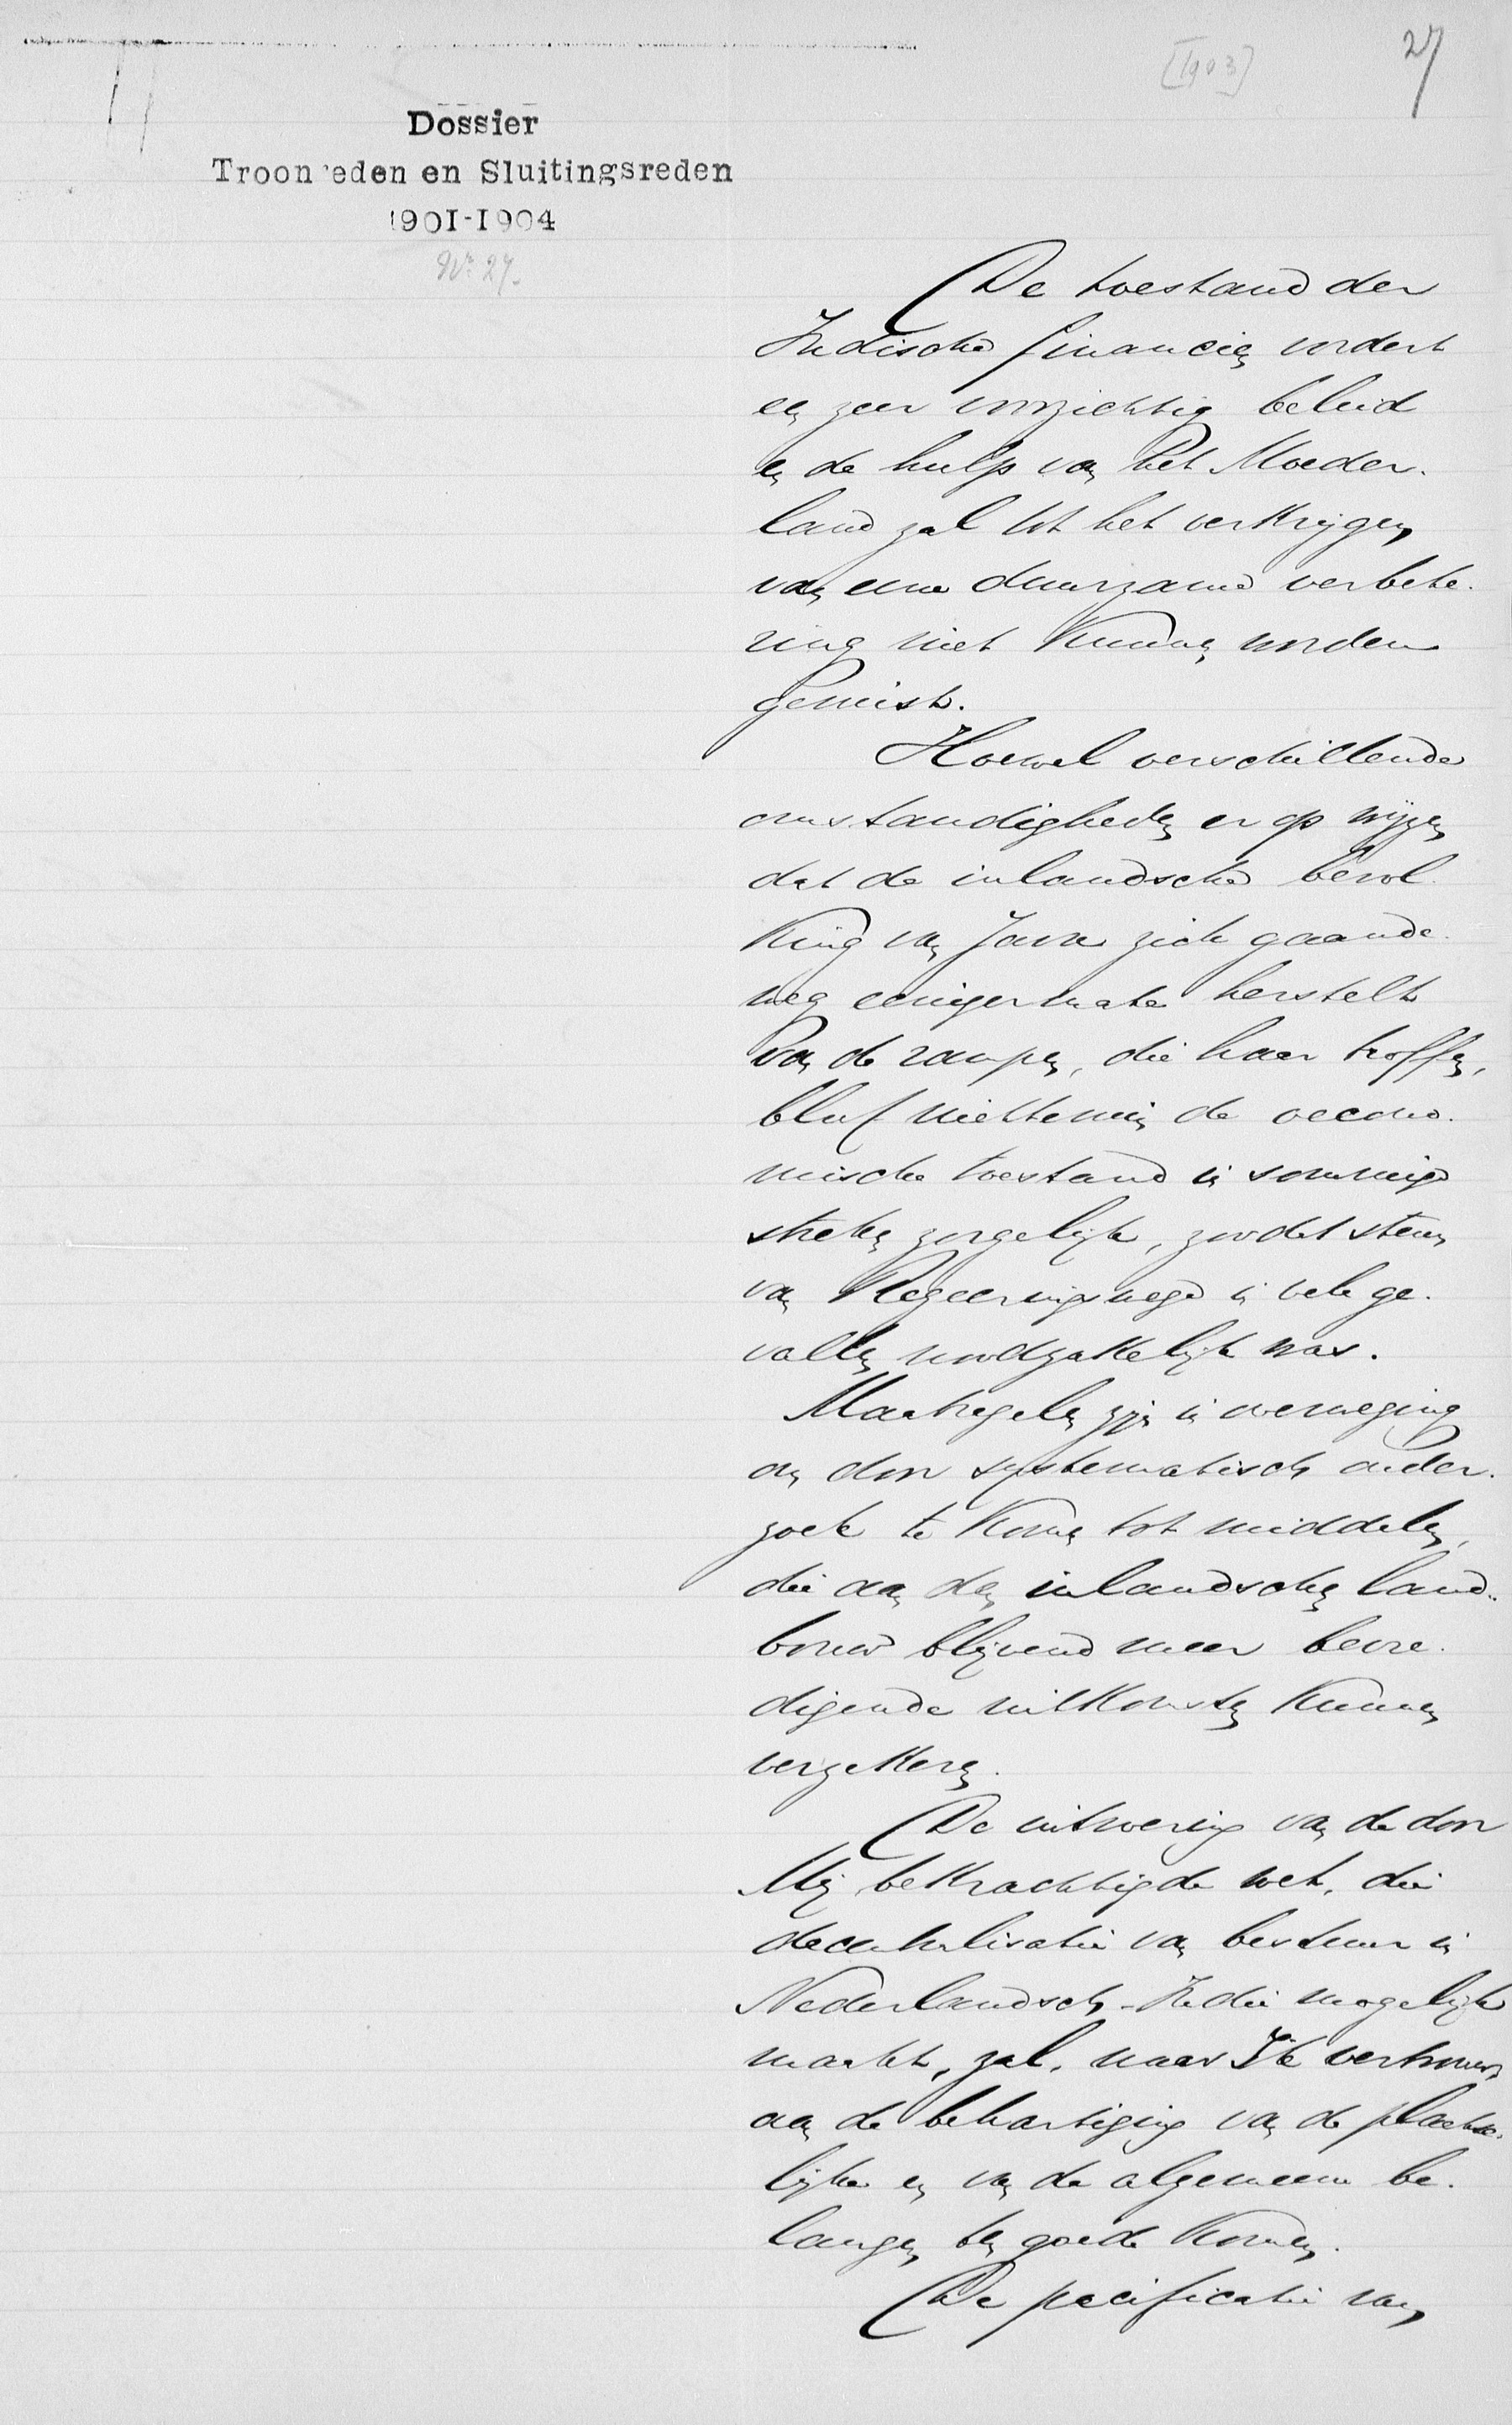 [1903]
27
Dossier
Troonreden en Sluitingsreden
1901-1904
No 27.
De toestand der
Indische financien vordert
een zeer voorzichtig beleid
en de hulp van het Moeder-
land zal tot het verkrijgen
van eene duurzame verbete-
ring niet kunnen worden
gemist.
Hoewel verschillende
omstandigheden er op wijzen
dat de inlandsche bevol-
king van Java zich gaande-
weg eenigermate herstelt
van de rampen, die haar troffen,
bleef niettemin de oecono-
mische toestand in sommige
streken zorgelijk, zoodat steun
van Regeeringswege in vele ge-
vallen noodzakelijk was.
Maatregelen zijn in overweging
om door systematisch onder-
zoek te komen tot middelen,
die aan den inlandschen land-
bouw blijvend meer bevre-
digende uitkomsten kunnen
verzekeren.
De uitvoering van de door
Mij bekrachtigde wet, die
decentralisatie van bestuur in
Nederlandsch-Indië mogelijk
maakt, zal, naar Ik vertrouw,
aan de behartiging van de plaatse-
lijke en van de algemeene be-
langen ten goede komen.
De pacificatie van